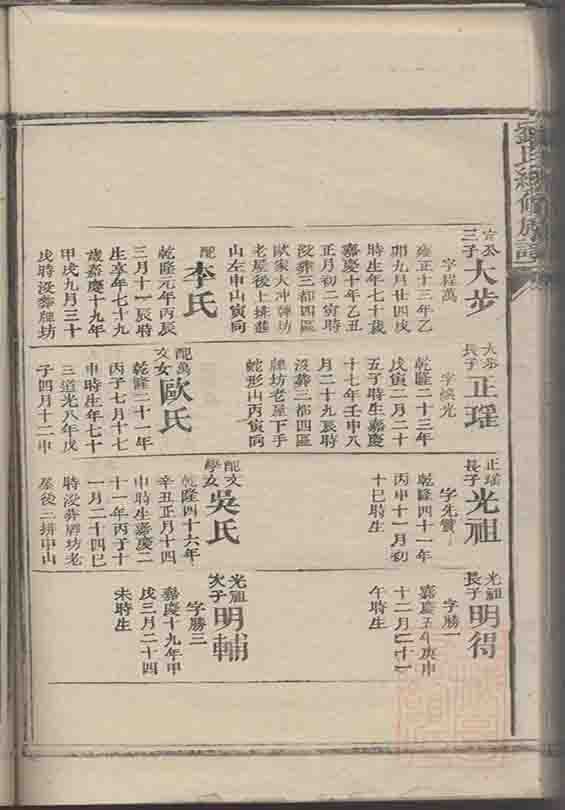 氏總修族譜
三子
大步
字程萬
雍正十三年乙
卯九月廿四戌
時生年七十歲
嘉慶十年乙丑
正月初二寅時
沒葬三都四區
歐家大冲牌坊
老屋後上排葬
山左申山寅向
配
李氏
乾隆元年丙辰
三月十一辰時
生享年七十九
歲嘉慶十九年
甲戌九月三十
戌時沒葬牌坊
大步
長子
正瑤
乾隆二十三年
戊寅二月二十
五子時生嘉慶
十七年壬申八
月二十九辰時
沒葬三都四區
牌坊老屋下手
蛇形山丙寅向
配萬
文女
歐氏
乾隆二十一年
丙子七月十七
申時生年七十
三道光八年戊
子四月十二申
正瑤
長子
光祖
字先贊
乾隆四十一年
丙申十一月初
十巳時生
配文
學女
吳氏
乾隆四十六年
辛丑正月十四
申時生嘉慶二
十一年丙子十
一月二十四巳
時沒葬牌坊老
屋後三排申山
光祖
長子
明得
字勝一
嘉慶五年庚申
十二月二十一
午時生
光祖
次子
明輔
字勝三
嘉慶十九年甲
戌三月二十四
未時生